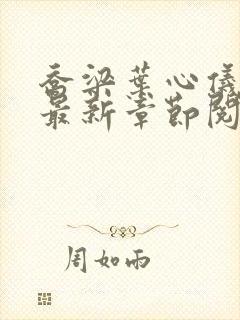 乔梁叶心仪
最新章节阅
周如雨